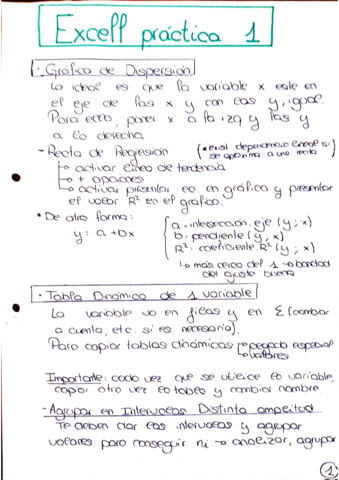 Excell práctica 1
· Gráfico de Dispersión
Lo ideal es que la variable x este en
el eje de las x y con las y, igual.
Para ello, poner x a la izq y las y
a la derecha
- Recta de Regresión (* exist dependencia lineal si
se aproxima a una recta
↳ activar línea de tendencia
↳ + opciones
↳ activar presentar ec. en gráfico y presentar
el valor R² en el gráfico.
* De otra forma:
y = a + bx
a = intersección. eje (y; x)
b = pendiente (y, x)
R² = coeficiente R² (y; x)
↳ más cerca del 1 → bondad
del ajuste buena
· Tabla Dinámica de 1 variable
La variable va en filas y en Σ (cambiar
a cuenta, etc. si es necesario).
Para copiar tablas dinámicas → pegado especial
→ valores
Importante: cada vez que se utilice la variable,
copiar otra vez la tabla y cambiar nombre
- Agrupar en Intervalos Distinta amplitud
Te deben dar los intervalos y agrupar
valores para conseguir ni → analizar, agrupar
1